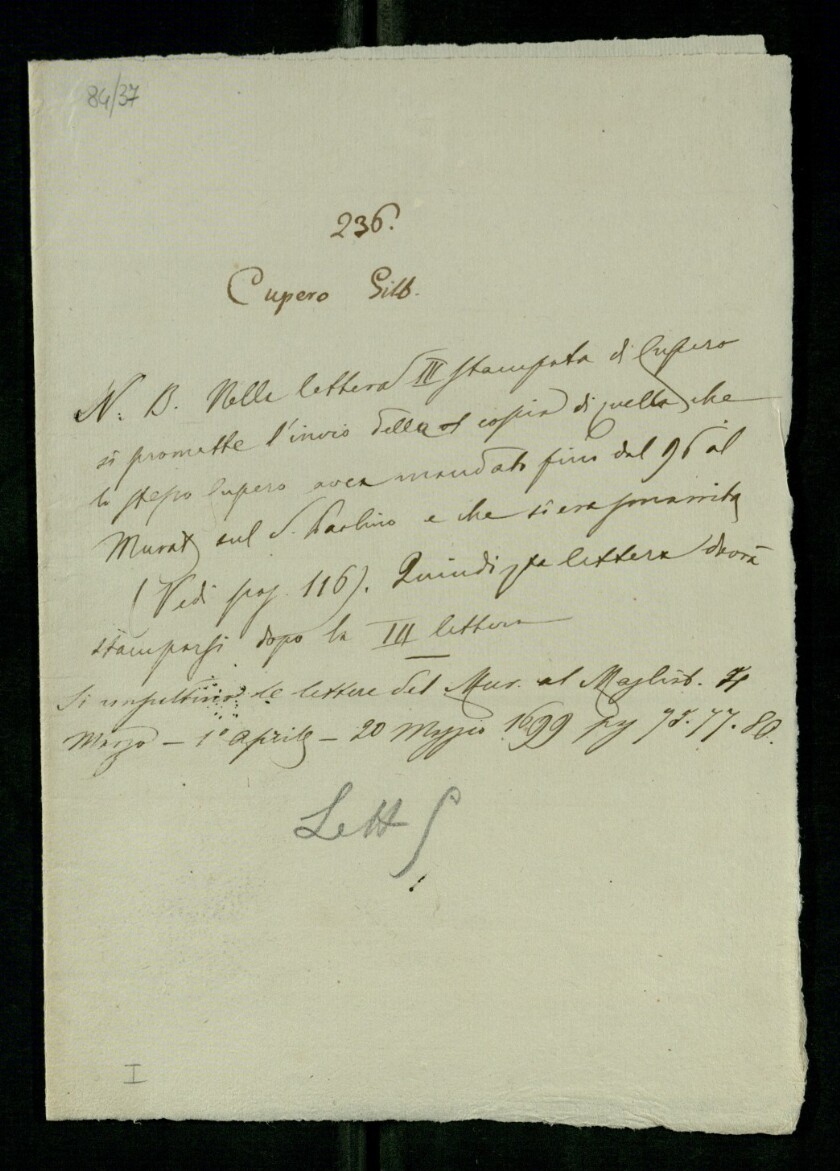 84/37
236.
Cupero Gilb.
N. B. Nella lettera III stampata di Cupero
si promette l'invio della copia di quella che
lo stesso Cupero avea mandato fino dal 96 al
Murat sul S. Paolino e che si era smarrita
(Vedi pag. 116). Quindi lettera dovrà
stamparsi dopo la III lettera
Si le lettere del Mur. al Magliab.
Marzo - 1° Aprile - 20 Maggio 1699 pag 75. 77. 80.
Lett
I